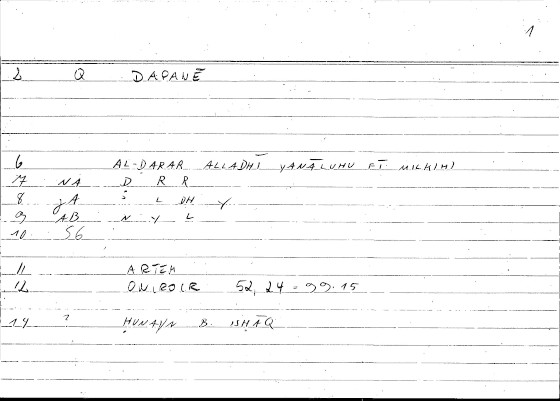 1
2 Q DAPANĒ
6 AL-ḌARAR ALLADHĪ YANĀLUHU FĪ MILKIHI
7 NA Ḍ R R
8 jA L DH Y
9 AB N Y L
10 S6
11 ARTEM
12 ONIROCR 52, 24 = 99.15
14 ? ḤUNAYN B. ISḤĀQ